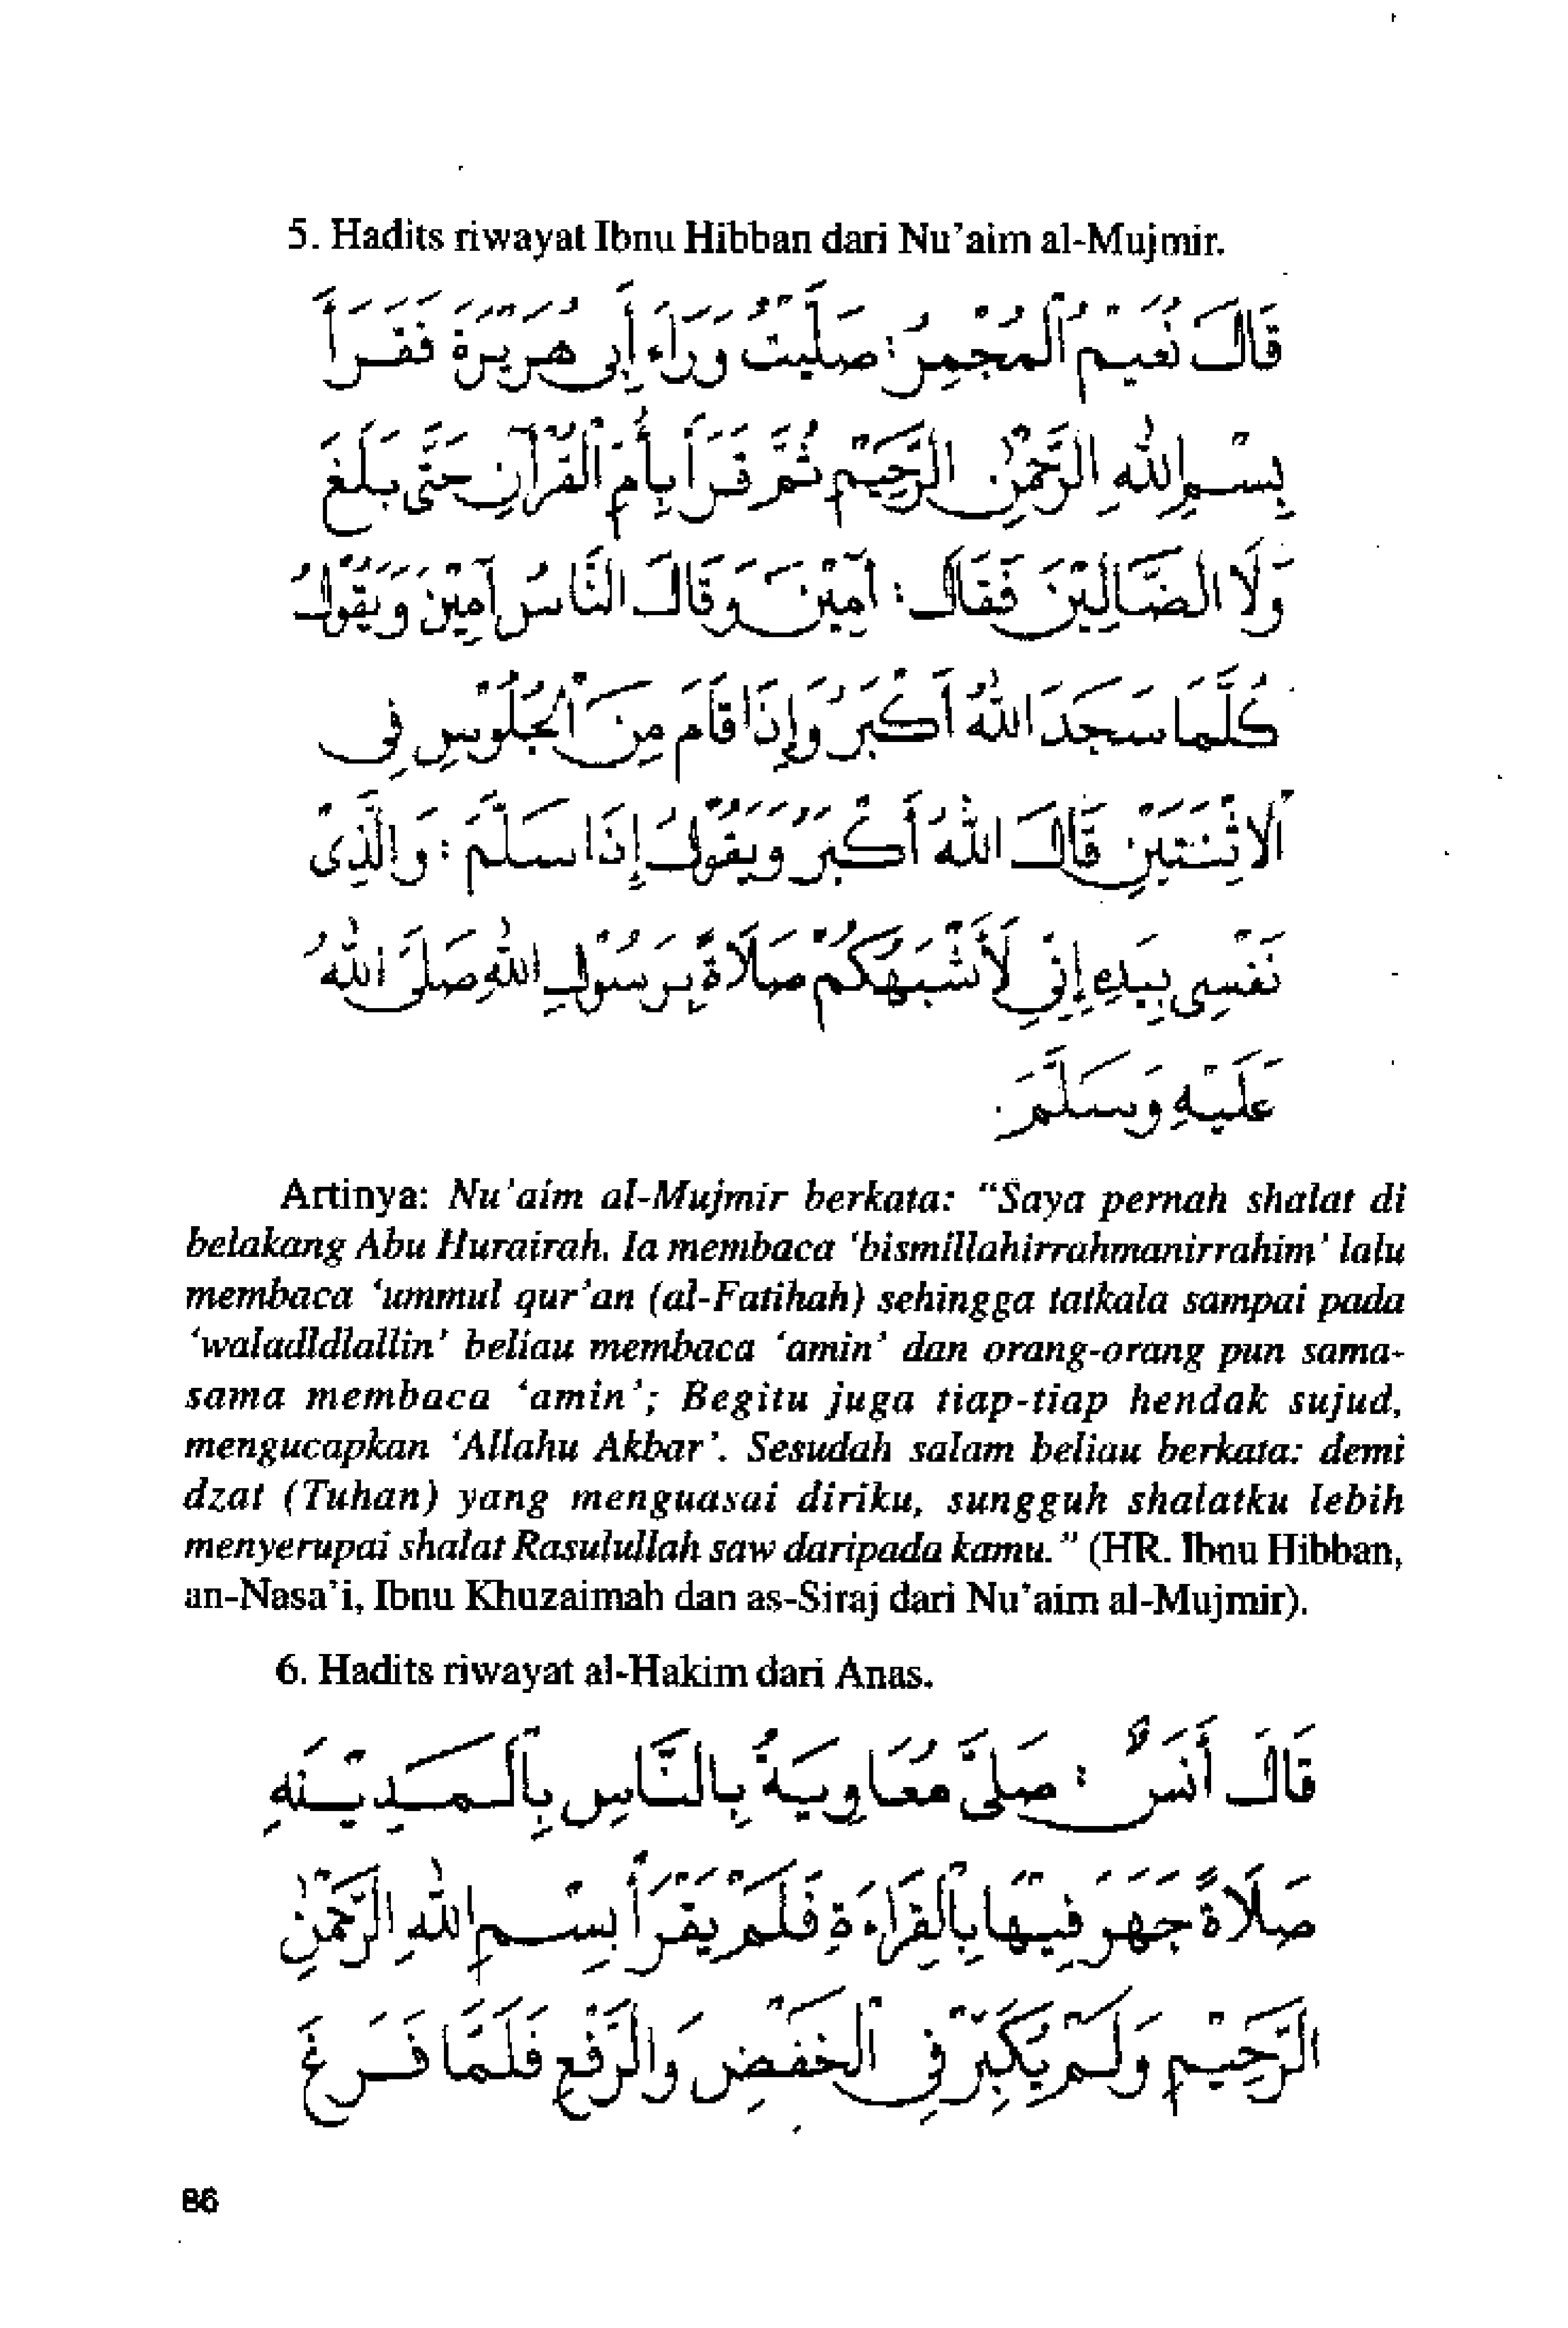 5. Hadits riwayat Ibnu Hibban dari Nu'aim al-Mujmir.
قَالَ نُعَيْمُ الْمُجْمِرُ: صَلَّيْتُ وَرَاءَ أَبِى هُرَيْرَةَ فَقَرَأَ
بِسْمِ اللهِ الرَّحْمٰنِ الرَّحِيْمِ ثُمَّ قَرَأَ بِأُمِّ الْقُرْآنِ حَتَّى بَلَغَ
وَلَا الضَّالِّيْنَ فَقَالَ: آمِيْنَ وَقَالَ النَّاسُ آمِيْنَ وَيَقُوْلُ
كُلَّمَا سَجَدَ اللهُ أَكْبَرُ وَإِذَا قَامَ مِنَ الْجُلُوْسِ فِى
الْاِثْنَتَيْنِ قَالَ اللهُ أَكْبَرُ وَيَقُوْلُ إِذَا سَلَّمَ: وَالَّذِىْ
نَفْسِى بِيَدِهِ إِنِّى لَأَشْبَهُكُمْ صَلَاةً بِرَسُوْلِ اللهِ صَلَّى اللهُ
عَلَيْهِ وَسَلَّمَ.
Artinya: Nu'aim al-Mujmir berkata: "Saya pernah shalat di
belakang Abu Hurairah. Ia membaca 'bismillahirrahmanirrahim' lalu
membaca 'ummul qur'an (al-Fatihah) sehingga tatkala sampai pada
'waladldlallin' beliau membaca 'amin' dan orang-orang pun sama-
sama membaca 'amin'; Begitu juga tiap-tiap hendak sujud,
mengucapkan 'Allahu Akbar'. Sesudah salam beliau berkata: demi
dzat (Tuhan) yang menguasai diriku, sungguh shalatku lebih
menyerupai shalat Rasulullah saw daripada kamu." (HR. Ibnu Hibban,
an-Nasa'i, Ibnu Khuzaimah dan as-Siraj dari Nu'aim al-Mujmir).
6. Hadits riwayat al-Hakim dari Anas.
قَالَ أَنَسٌ: صَلَّى مُعَاوِيَةُ بِالنَّاسِ بِالْمَدِيْنَهِ
صَلَاةً جَهَرَ فِيْهَا بِالْقِرَاءَةِ فَلَمْ يَقْرَأْ بِسْمِ اللهِ الرَّحْمٰنِ
الرَّحِيْمِ وَلَمْ يُكَبِّرْ فِى الْخَفْضِ وَالرَّفْعِ فَلَمَّا فَرَغَ
86